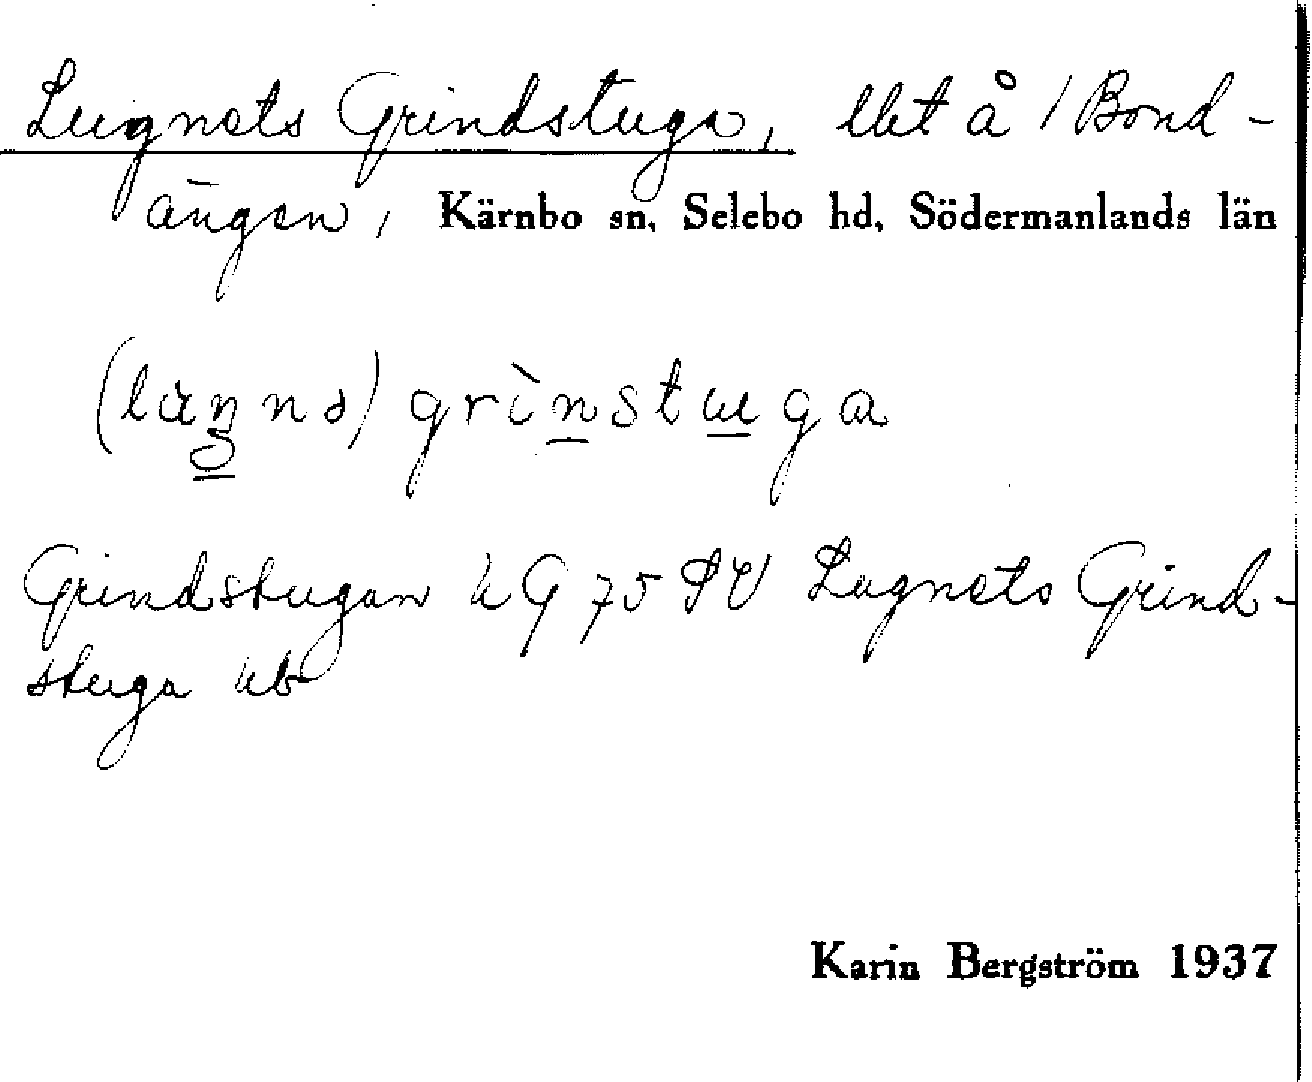 Lugnets Grindstuga, lht å 1 Bond-
ängen, Kärnbo sn, Selebo hd, Södermanlands län
grìnstuga
Grindstugan kG 75 SV Lugnets Grind-
stuga kb
Karin Bergström 1937